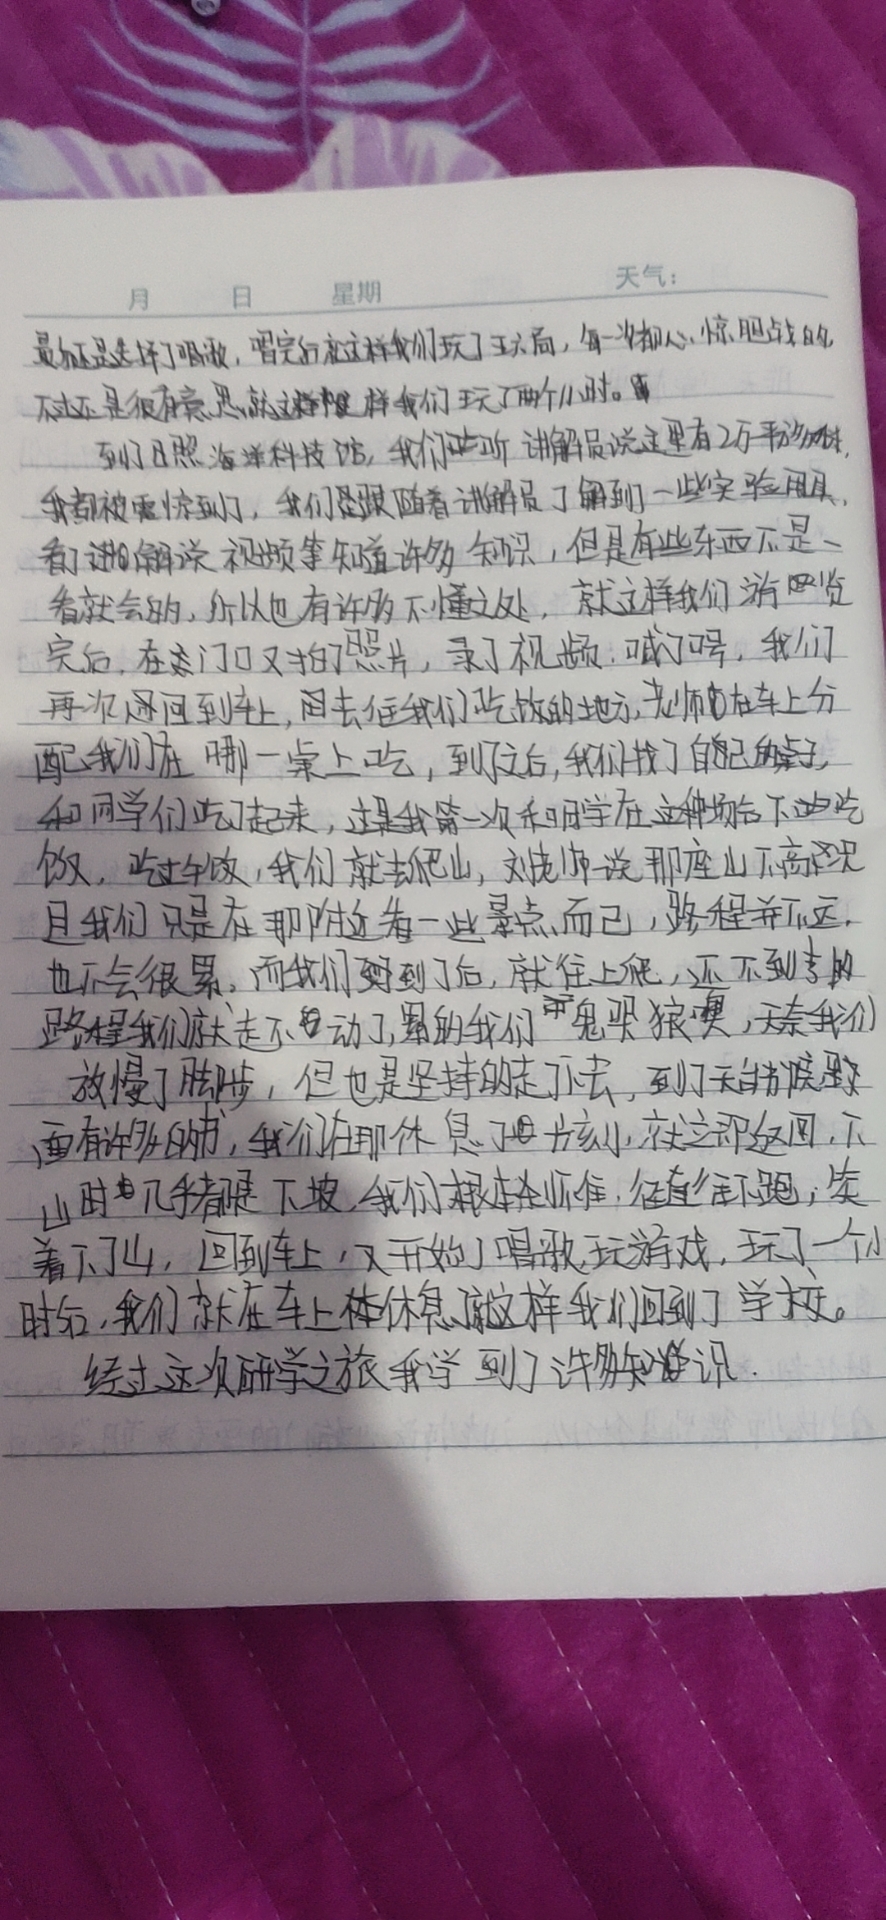 月 日 星期 天气：
最后还是选择了唱歌，唱完后就这样我们玩了五六局，每一次都心惊胆战的，
不过还是很有意思，就这样我们玩了两个小时。
到了日照海洋科技馆，我们听讲解员说这里有2万平方
我都被震惊到了，我们跟随着讲解员了解到一些实验用具，
看了讲解说视频等知道许多知识，但是有些东西不是一
看就会的，所以也有许多不懂之处，就这样我们游览
完后，在大门口又拍了照片，录了视频，喊了口号，我们
再次返回到车上，回去往我们吃饭的地方，老师在车上分
配我们在哪一桌上吃，到了之后，我们找了自己的桌子，
和同学们吃了起来，这是我第一次和同学在这种场合下吃
饭，吃过午饭，我们就去爬山，刘老师说那座山不高况
且我们只是在那附近看一些景点而已，路程并不远，
也不会很累，而我们到了后，就往上爬，还不到的
路程我们就走不动了，累的我们鬼哭狼嗥，无奈我们
放慢了脚步，但也是坚持的走下去，到了天台
面有许多的书，我们在那休息了片刻，就立即返回，下
山时几乎都是下坡，我们根本刹不住，径直往下跑，笑
着下了山，回到车上，又开始了唱歌，玩游戏，玩了一个小
时后，我们就在车上休息，就这样我们回到了学校。
经过这次研学之旅我学到了许多知识．